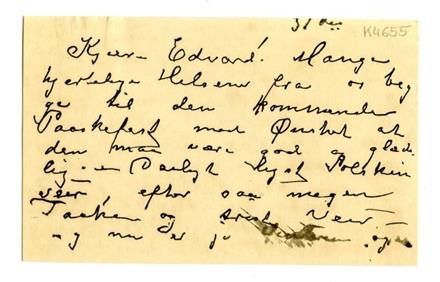 31 K4655
Kjære Edvard! Mange
hjertelige Hilsener fra os beg
ge til den kommende
Paaskefest med Ønsket at
den maa være god og glæde
lig. Deiligt lyst Solskin
efter saa megen
Taaken og trist Veir
og nu er jo